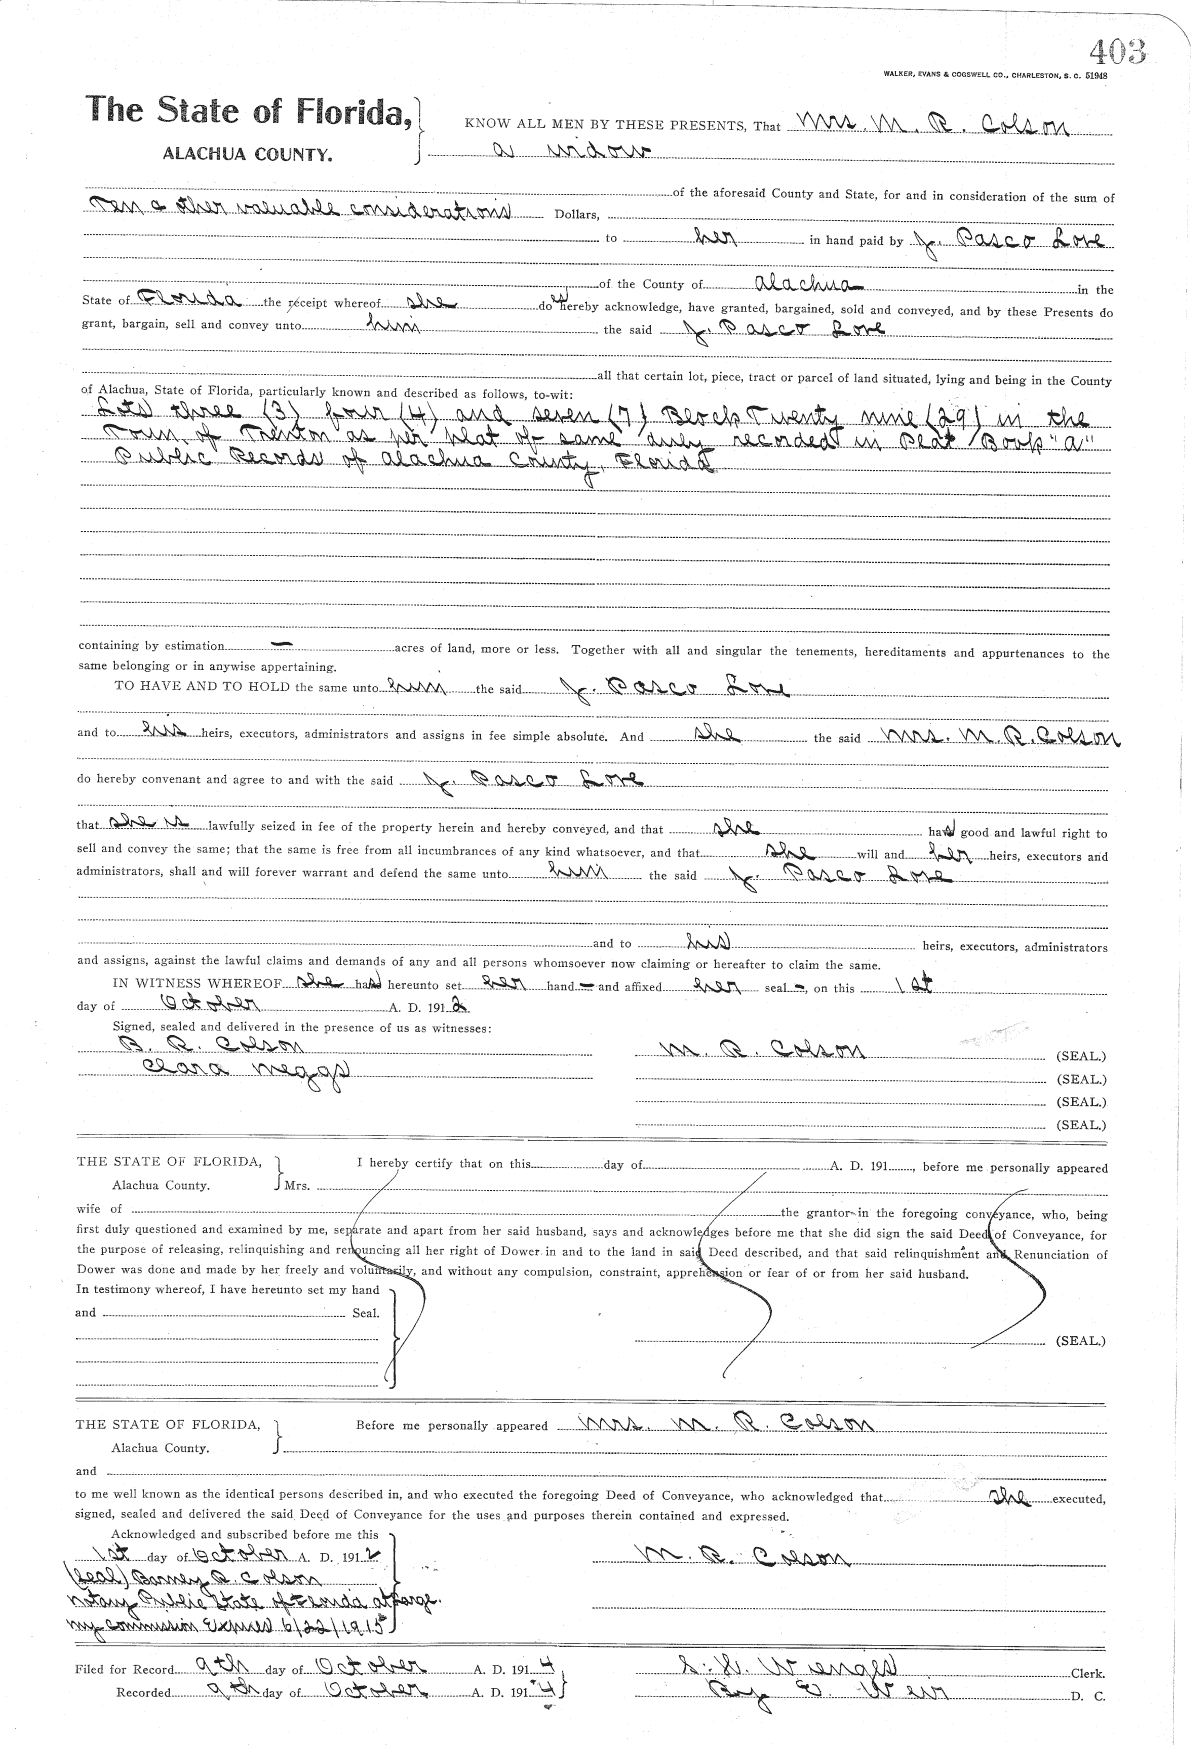 403
WALKER, EVANS & COGSWELL CO., CHARLESTON, S. C. 51948
The State of Florida,
ALACHUA COUNTY.
KNOW ALL MEN BY THESE PRESENTS, That Mrs. M. R. Colson
a widow
of the aforesaid County and State, for and in consideration of the sum of
Ten & other valuable considerations Dollars,
to her in hand paid by J. Pasco Love
of the County of Alachua in the
State of Florida the receipt whereof she do hereby acknowledge, have granted, bargained, sold and conveyed, and by these Presents do
grant, bargain, sell and convey unto him the said J. Pasco Love
all that certain lot, piece, tract or parcel of land situated, lying and being in the County
of Alachua, State of Florida, particularly known and described as follows, to-wit:
Lots three (3) four (4) and seven (7) Block Twenty nine (29) in the
Town of Trenton as per plat of same duly recorded in Plat Book "a"
Public Records of Alachua County, Florida
containing by estimation — acres of land, more or less. Together with all and singular the tenements, hereditaments and appurtenances to the
same belonging or in anywise appertaining.
TO HAVE AND TO HOLD the same unto him the said J. Pasco Love
and to his heirs, executors, administrators and assigns in fee simple absolute. And she the said Mrs. M. R. Colson
do hereby convenant and agree to and with the said J. Pasco Love
that she is lawfully seized in fee of the property herein and hereby conveyed, and that she has good and lawful right to
sell and convey the same; that the same is free from all incumbrances of any kind whatsoever, and that she will and her heirs, executors and
administrators, shall and will forever warrant and defend the same unto him the said J. Pasco Love
and to his heirs, executors, administrators
and assigns, against the lawful claims and demands of any and all persons whomsoever now claiming or hereafter to claim the same.
IN WITNESS WHEREOF she has hereunto set her hand — and affixed her seal -, on this 1st
day of October A. D. 1912
Signed, sealed and delivered in the presence of us as witnesses:
B. R. Colson M. R. Colson (SEAL.)
Clara Meggs (SEAL.)
(SEAL.)
(SEAL.)
THE STATE OF FLORIDA, I hereby certify that on this day of A. D. 191 , before me personally appeared
Alachua County. Mrs.
wife of the grantor in the foregoing conveyance, who, being
first duly questioned and examined by me, separate and apart from her said husband, says and acknowledges before me that she did sign the said Deed of Conveyance, for
the purpose of releasing, relinquishing and renouncing all her right of Dower in and to the land in said Deed described, and that said relinquishment and Renunciation of
Dower was done and made by her freely and voluntarily, and without any compulsion, constraint, apprehension or fear of or from her said husband.
In testimony whereof, I have hereunto set my hand
and Seal.
(SEAL.)
THE STATE OF FLORIDA, Before me personally appeared Mrs. M. R. Colson
Alachua County.
and
to me well known as the identical persons described in, and who executed the foregoing Deed of Conveyance, who acknowledged that she executed,
signed, sealed and delivered the said Deed of Conveyance for the uses and purposes therein contained and expressed.
Acknowledged and subscribed before me this
1st day of October A. D. 1912 M. R. Colson
(Seal) Barney R. Colson
Notary Public State of Florida at large.
My Commission Expires 6/22/1915
Filed for Record 9th day of October A. D. 1914 S. H. Wienges Clerk.
Recorded 9th day of October A. D. 1914 By E. Weir D. C.